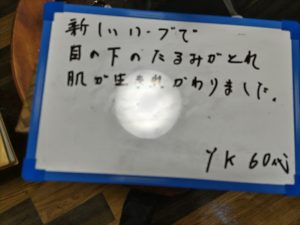 新しいハーブで
目の下のたるみがとれ
肌が生まれかわりました。
YK 60代